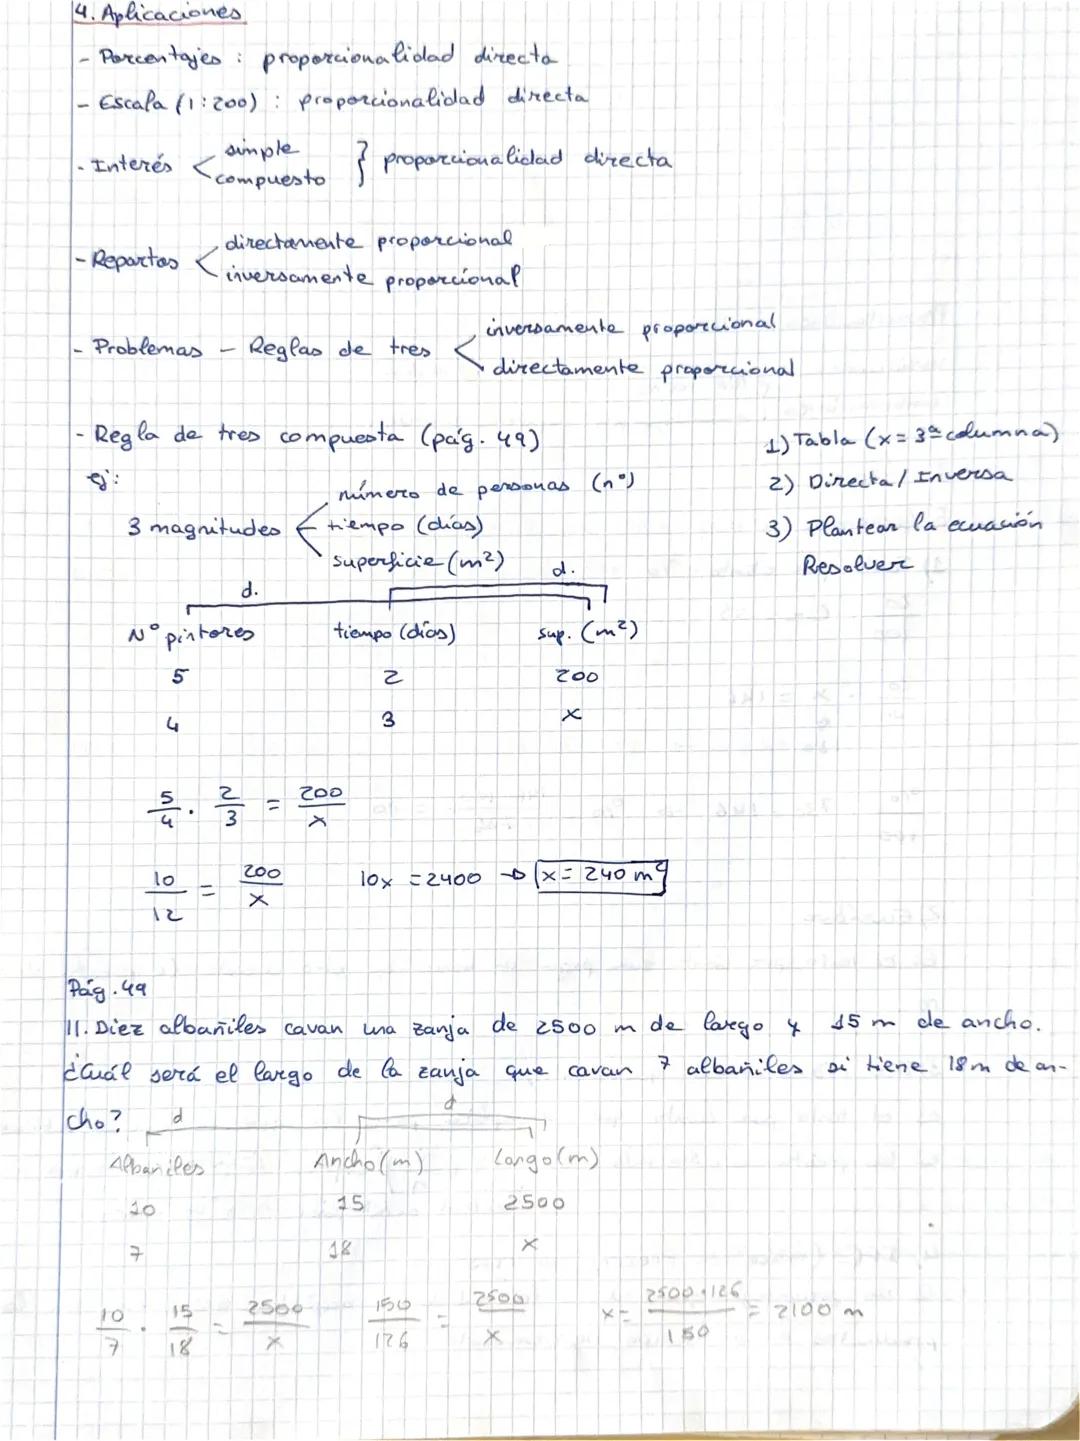 4. Aplicaciones
- Porcentajes : proporcionalidad directa
- Escala (1:200) : proporcionalidad directa
- Interés < simple compuesto } proporcionalidad directa
- Repartos < directamente proporcional
inversamente proporcional
- Problemas - Reglas de tres < inversamente proporcional
directamente proporcional
- Regla de tres compuesta (pág. 49)
ej:
3 magnitudes
número de personas (nº)
tiempo (días)
superficie (m²)
1) Tabla (x = 3ª columna)
2) Directa / Inversa
3) Plantear la ecuación
Resolver
d. d.
Nº pintores tiempo (días) sup. (m²)
5 2 200
4 3 x
5/4 · 2/3 = 200/x
10/12 = 200/x 10x = 2400 → x = 240 m²
Pág. 49
11. Diez albañiles cavan una zanja de 2500 m de largo y 15 m de ancho.
¿Cuál será el largo de la zanja que cavan 7 albañiles si tiene 18 m de an-
cho?
d d
Albañiles Ancho (m) Largo (m)
10 15 2500
7 18 x
10/7 · 15/18 = 2500/x 150/126 = 2500/x x = 2500·126/150 = 2100 m